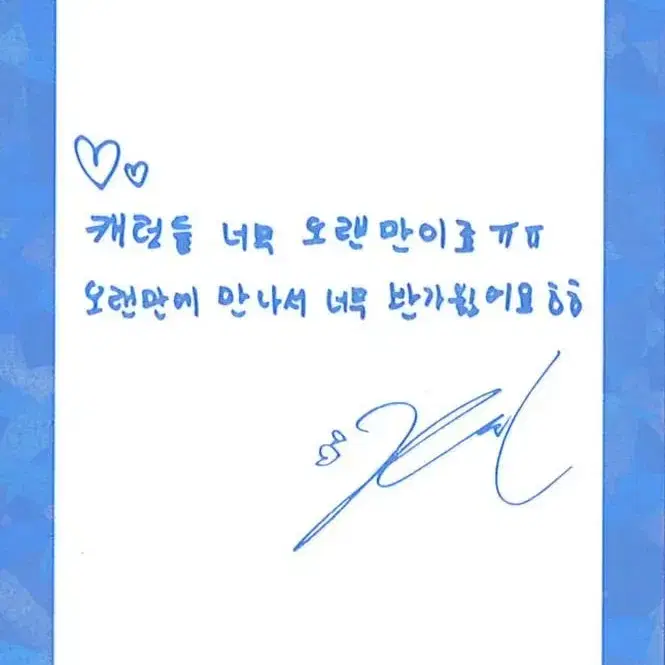 캐럿들 너무 오랜만이죠 ㅠㅠ
오랜만에 만나서 너무 반가웠어요 ㅎㅎ